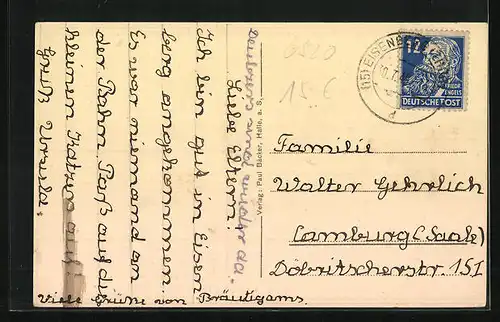 Liebe Eltern!
Ich bin gut in Eisen
berg angekommen.
Es war niemand an
der Bahn. Paß auf die
kleinen Katzen auf!
Gruß Ursula.
Viele Grüße von Bräutigams.
wieder da.
Verlag: Paul Bäcker, Halle, a. S.
0520
15 €
(15) EISENBERG
d
12
FRIEDR
ENGELS
DEUTSCHE POST
Familie
Walter Gehrlich
Camburg (Saale)
Döbritscherstr 15I